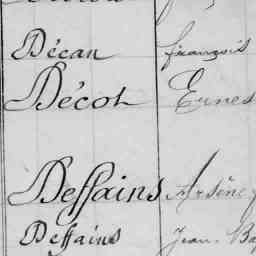 Décan françois
Décot Ernes
Deffains Arsène
Deffains Jean Ba